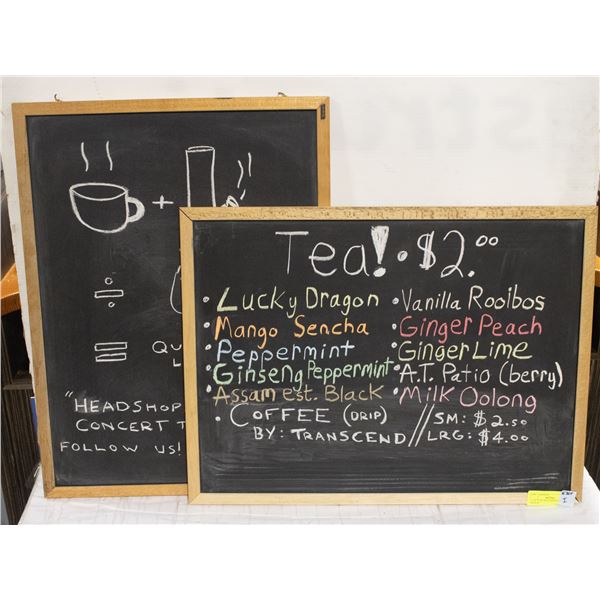 +
÷
= QU
L
"HEADSHOP
CONCERT T
FOLLOW US!
Tea! • $2.00
• Lucky Dragon
• Mango Sencha
• Peppermint
• Ginseng Peppermint
• Assam est. Black
• Vanilla Rooibos
• Ginger Peach
• Ginger Lime
• A.T. Patio (berry)
• Milk Oolong
• COFFEE (DRIP) // SM: $2.50
BY: TRANSCEND // LRG: $4.00